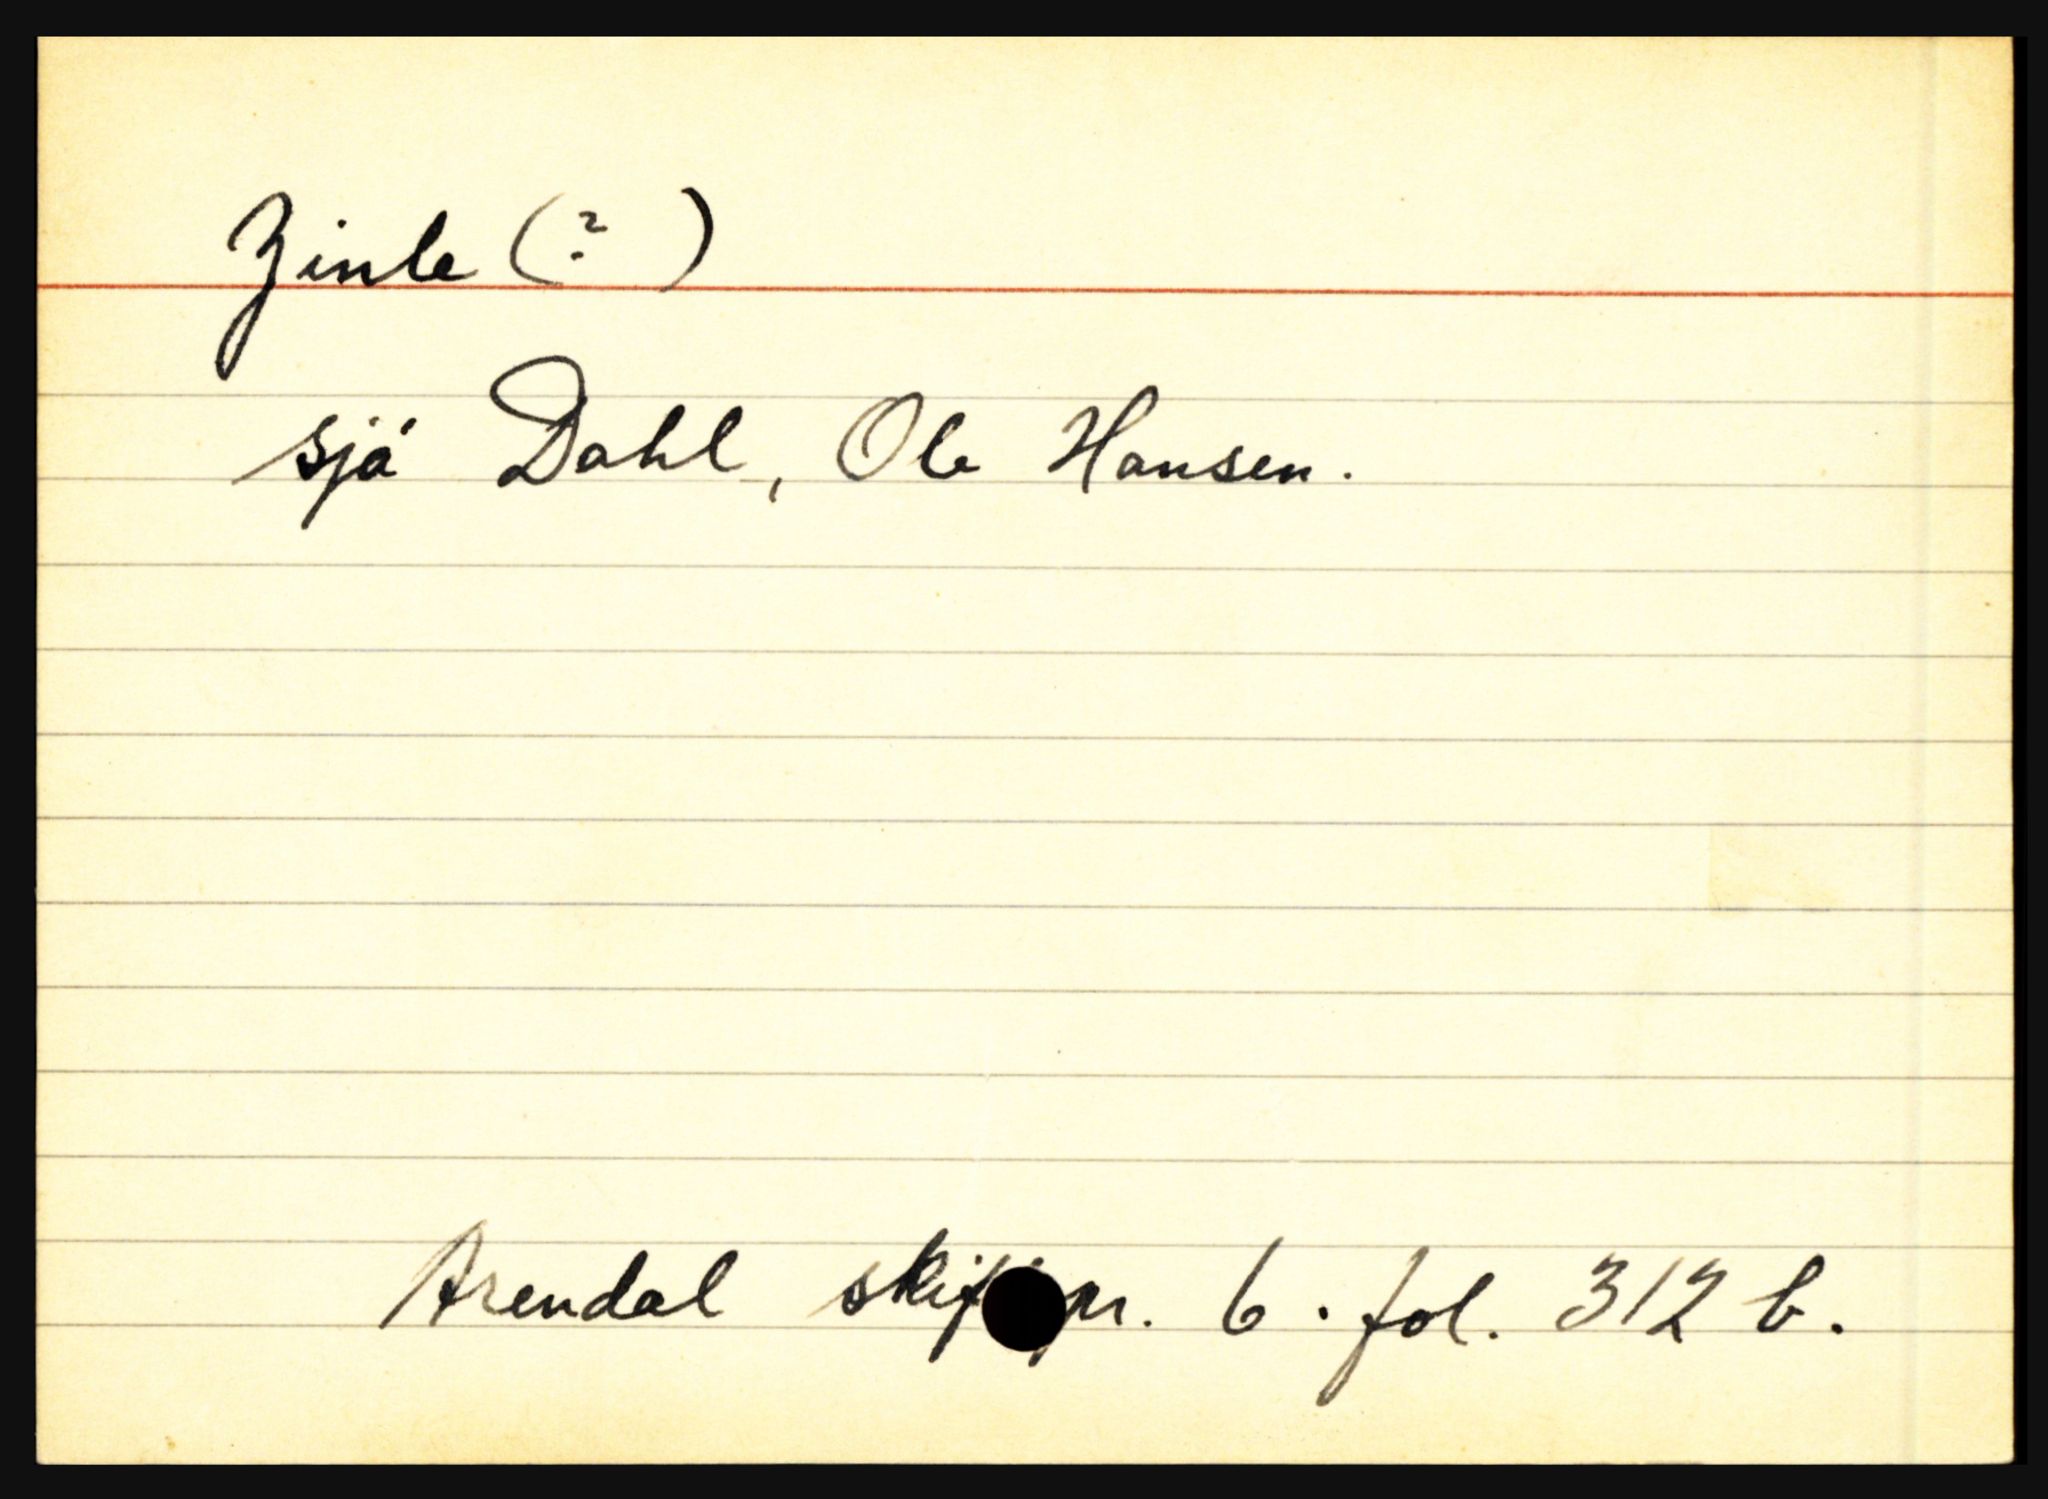 Zinle (? )
sjå Dahl, Ole Hansen.
Arendal skifpr. 6. fol. 312 b.